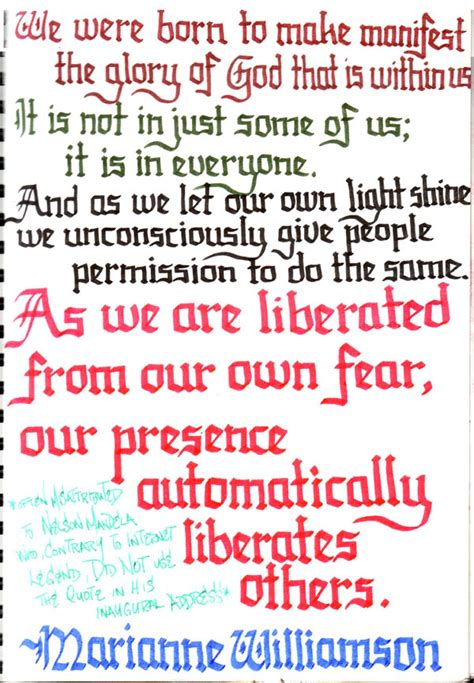 We were born to make manifest
the glory of God that is within us
It is not in just some of us;
it is in everyone.
And as we let our own light shine
we unconsciously give people
permission to do the same.
As we are liberated
from our own fear,
our presence
automatically
liberates
others.
*often
to Nelson Mandela
who, contrary to Internet
legend, did not use
the quote in his
inaugural address*
~Marianne Williamson